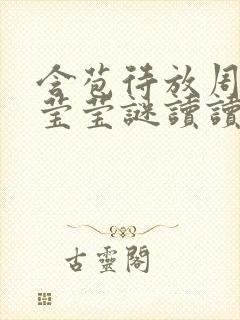 含苞待放周
莹莹謎讀讀
古靈閣